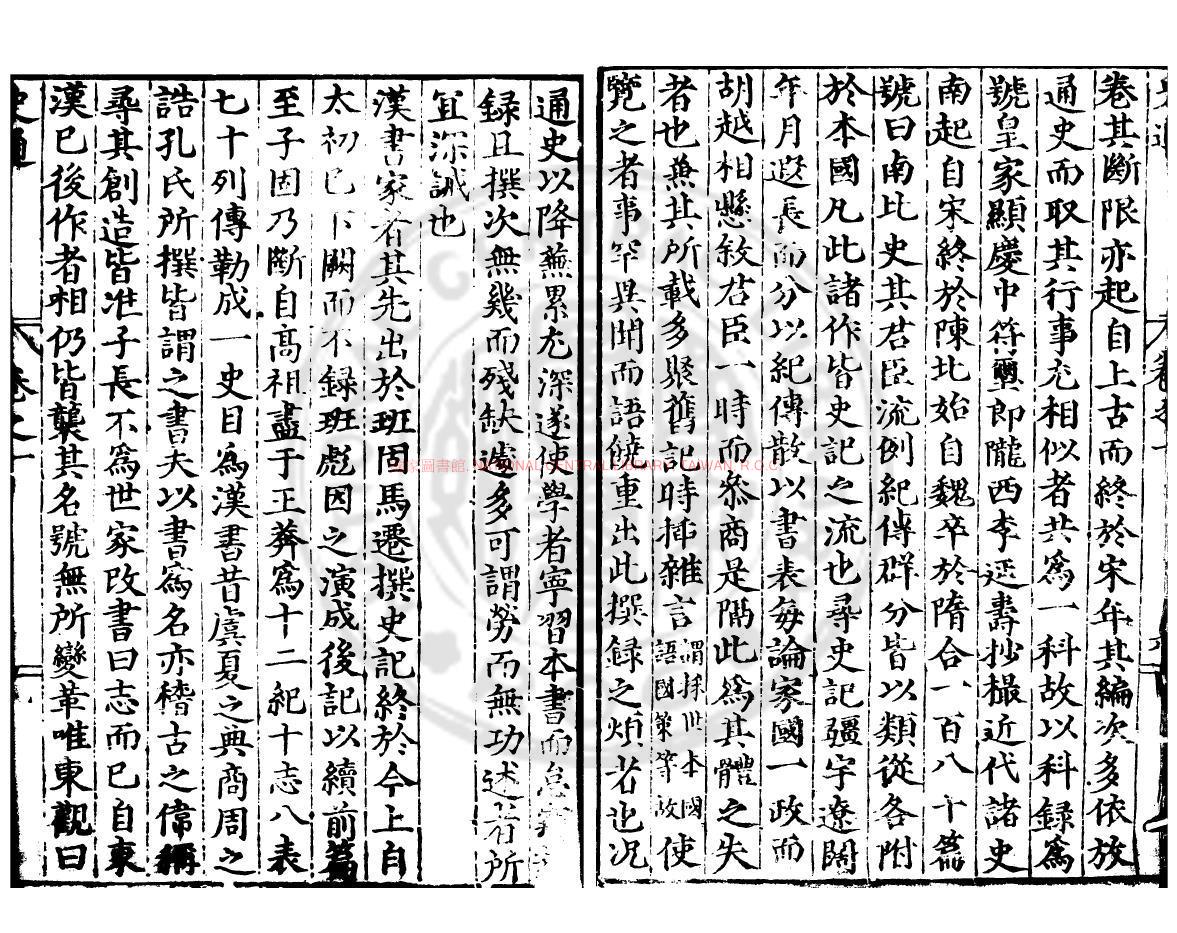 卷其斷限亦起自上古而終於宋年其編次多依放
通史而取其行事尤相似者共爲一科故以科錄爲
號皇家顯慶中符璽郎隴西李延壽抄撮近代諸史
南起自宋終於陳北始自魏卒於隋合一百八十篇
號曰南北史其君臣流例紀傳群分皆以類從各附
於本國凡此諸作皆史記之流也尋史記疆宇遼闊
年月遐長而分以紀傳散以書表每論家國一政而
胡越相懸敘君臣一時而參商是隔此爲其體之失
者也兼其所載多聚舊記時插雜言謂採世本國語國策等故使
覽之者事罕異聞而語饒重出此撰錄之煩者也況
通史以降蕪累尤深遂使學者寧習本書而怠
録且撰次無幾而殘缺遽多可謂勞而無功述者所
宜深誡也
漢書家者其先出於班固馬遷撰史記終於今上自
太初已下闕而不録班彪因之演成後記以續前篇
至子固乃斷自高祖盡于王莽爲十二紀十志八表
七十列傳勒成一史目爲漢書昔虞夏之典商周之
誥孔氏所撰皆謂之書夫以書爲名亦稽古之偉稱
尋其創造皆准子長不爲世家改書曰志而已自東
漢已後作者相仍皆襲其名號無所變革唯東觀曰
史通
卷之一
國家圖書館, NATIONAL CENTRAL LIBRARY, TAIWAN, R.O.C.